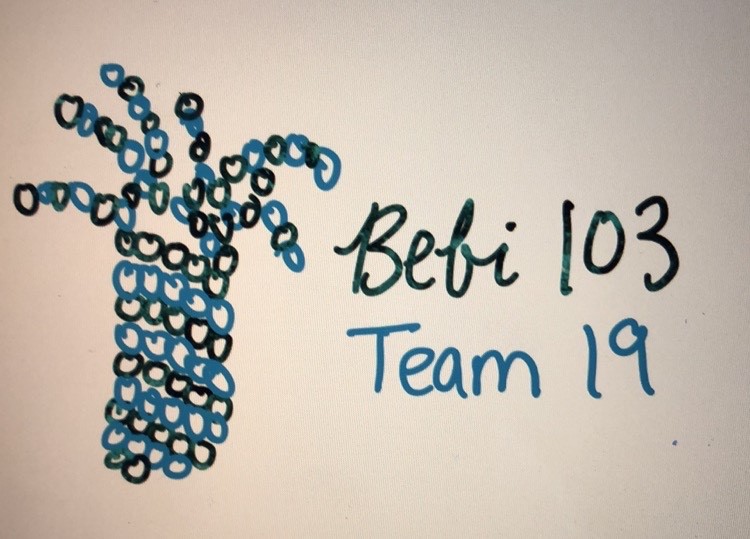 Bebi 103
Team 19